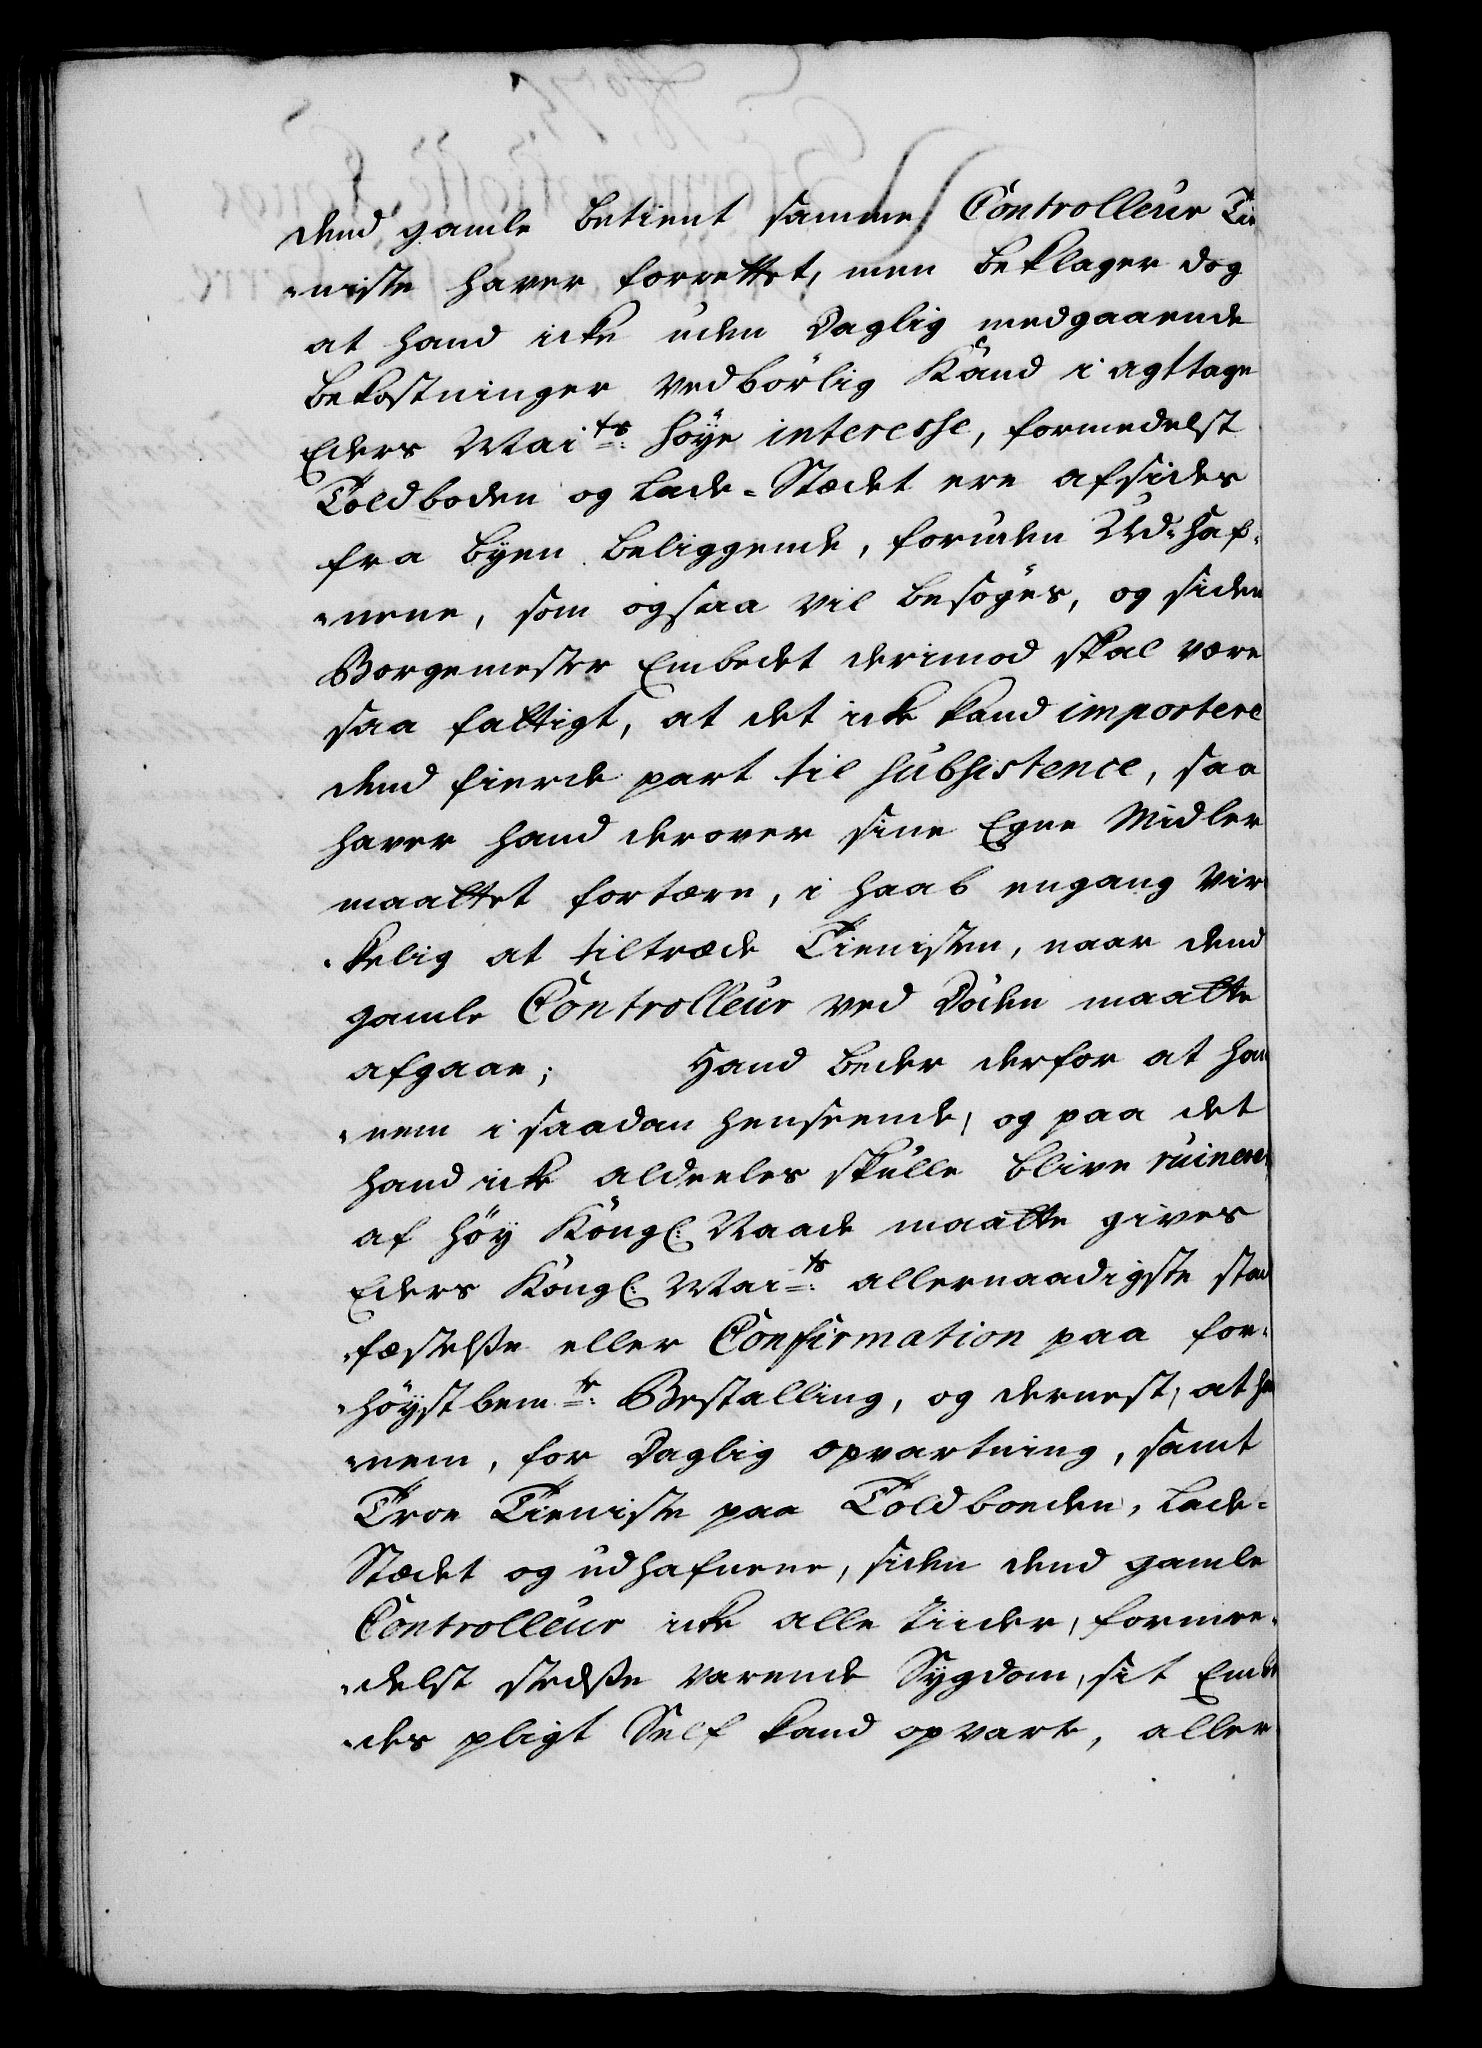 dend gamle betient samme Controlleur Tie
-niste haver forrettet, men beklager dog
at hand icke uden Daglig medgaaende
bekostninger vedbørlig Kand i agttage
Eders Maits. høye interesse, formedelst
Toldboden og Lade-Stædet ere afsides
fra byen beliggende, foruden Ud-haf-
-nene, som ogsaa vil besøges, og siden
Borgemester Embedet derimod skal være
saa fattigt, at det icke kand importere
dend fierde part til subsistence, saa
haver hand derover sine Egne Midler
maattet fortære, i haab engang vir
-kelig at tiltræde Tienisten, naar dend
gamle Controlleur ved Døden maatte
afgaae; Hand beder derfor at han
-nem i saadan henseende, og paa det
hand icke aldeeles skulle blive ruineret
af høy Kongl: Naade maatte gives
Eders Kongl: Maits. allernaadigste stad
-fæstelße eller Confirmation paa for-
-høystbemte. Bestalling, og dernest, at han
-nem, for Daglig opvartning, samt
Troe Tieniste paa Toldboeden, Lade-
Stædet og udhafnene, siden dend gamle
Controlleur icke alle Tiider, formee-
-delst stedße varende Sygdom, sit Embe
-des pligt Self kand opvarte, aller